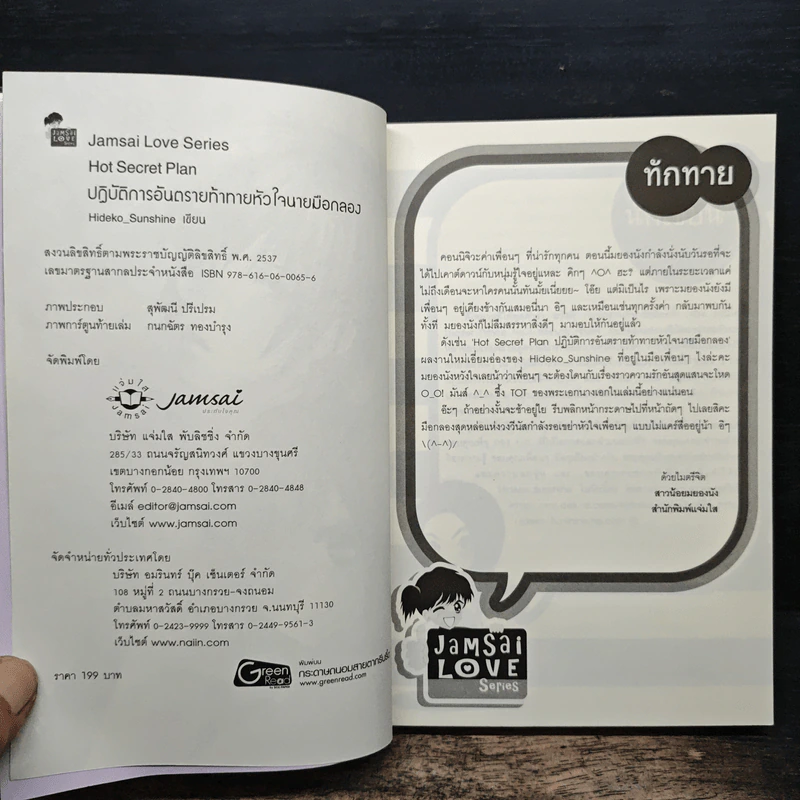 JAMSAI
LOVE
Series
Jamsai Love Series
Hot Secret Plan
ปฏิบัติการอันตรายท้าทายหัวใจนายมือกลอง
Hideko_Sunshine เขียน
สงวนลิขสิทธิ์ตามพระราชบัญญัติลิขสิทธิ์ พ.ศ. 2537
เลขมาตรฐานสากลประจำหนังสือ ISBN 978-616-06-0065-6
ภาพประกอบ สุพัฒนี ปรีเปรม
ภาพการ์ตูนท้ายเล่ม กนกฉัตร ทองบำรุง
จัดพิมพ์โดย
แจ่มใส
Jamsai
Jamsai
บริษัท แจ่มใส พับลิชชิ่ง จำกัด
285/33 ถนนจรัญสนิทวงศ์ แขวงบางขุนศรี
เขตบางกอกน้อย กรุงเทพฯ 10700
โทรศัพท์ 0-2840-4800 โทรสาร 0-2840-4848
อีเมล์ editor@jamsai.com
เว็บไซต์ www.jamsai.com
จัดจำหน่ายทั่วประเทศโดย
บริษัท อมรินทร์ บุ๊ค เซ็นเตอร์ จำกัด
108 หมู่ที่ 2 ถนนบางกรวย-จงถนอม
ตำบลมหาสวัสดิ์ อำเภอบางกรวย จ.นนทบุรี 11130
โทรศัพท์ 0-2423-9999 โทรสาร 0-2449-9561-3
เว็บไซต์ www.naiin.com
ราคา 199 บาท
Green
Read
พิมพ์บน
กระดาษถนอมสายตากรีนรี้ด
www.greenread.com
ทักทาย
คอนนิจิวะค่าเพื่อนๆ ที่น่ารักทุกคน ตอนนี้มยองนังกำลังนั่งนับวันรอที่จะ
ได้ไปเคาต์ดาวน์กับหนุ่มรู้ใจอยู่แหละ คิกๆ ^O^ ฮะ? แต่ภายในระยะเวลาแค่
ไม่ถึงเดือนจะหาใครคนนั้นทันมั้ยเนี่ยยย~ โอ๊ย แต่มิเป็นไร เพราะมยองนังยังมี
เพื่อนๆ อยู่เคียงข้างกันเสมอนี่นา อิๆ และเหมือนเช่นทุกครั้งค่า กลับมาพบกัน
ทั้งที มยองนังก็ไม่ลืมสรรหาสิ่งดีๆ มามอบให้กันอยู่แล้ว
ดังเช่น 'Hot Secret Plan ปฏิบัติการอันตรายท้าทายหัวใจนายมือกลอง'
ผลงานใหม่เอี่ยมอ่องของ Hideko_Sunshine ที่อยู่ในมือเพื่อนๆ ไงล่ะคะ
มยองนังหวังใจเลยน้าว่าเพื่อนๆ จะต้องโดนกับเรื่องราวความรักอันสุดแสนจะโหด
O_O! มันส์ ^_^ ซึ้ง TOT ของพระเอกนางเอกในเล่มนี้อย่างแน่นอน
อ๊ะๆ ถ้าอย่างงั้นจะช้าอยู่ไย รีบพลิกหน้ากระดาษไปที่หน้าถัดๆ ไปเลยสิคะ
มือกลองสุดหล่อแห่งวงวีนัสกำลังรอเขย่าหัวใจเพื่อนๆ แบบไม่แคร์สื่ออยู่น้า อิๆ
\(^-^)/
ด้วยไมตรีจิต
สาวน้อยมยองนัง
สำนักพิมพ์แจ่มใส
JAMSAI
LOVE
Series